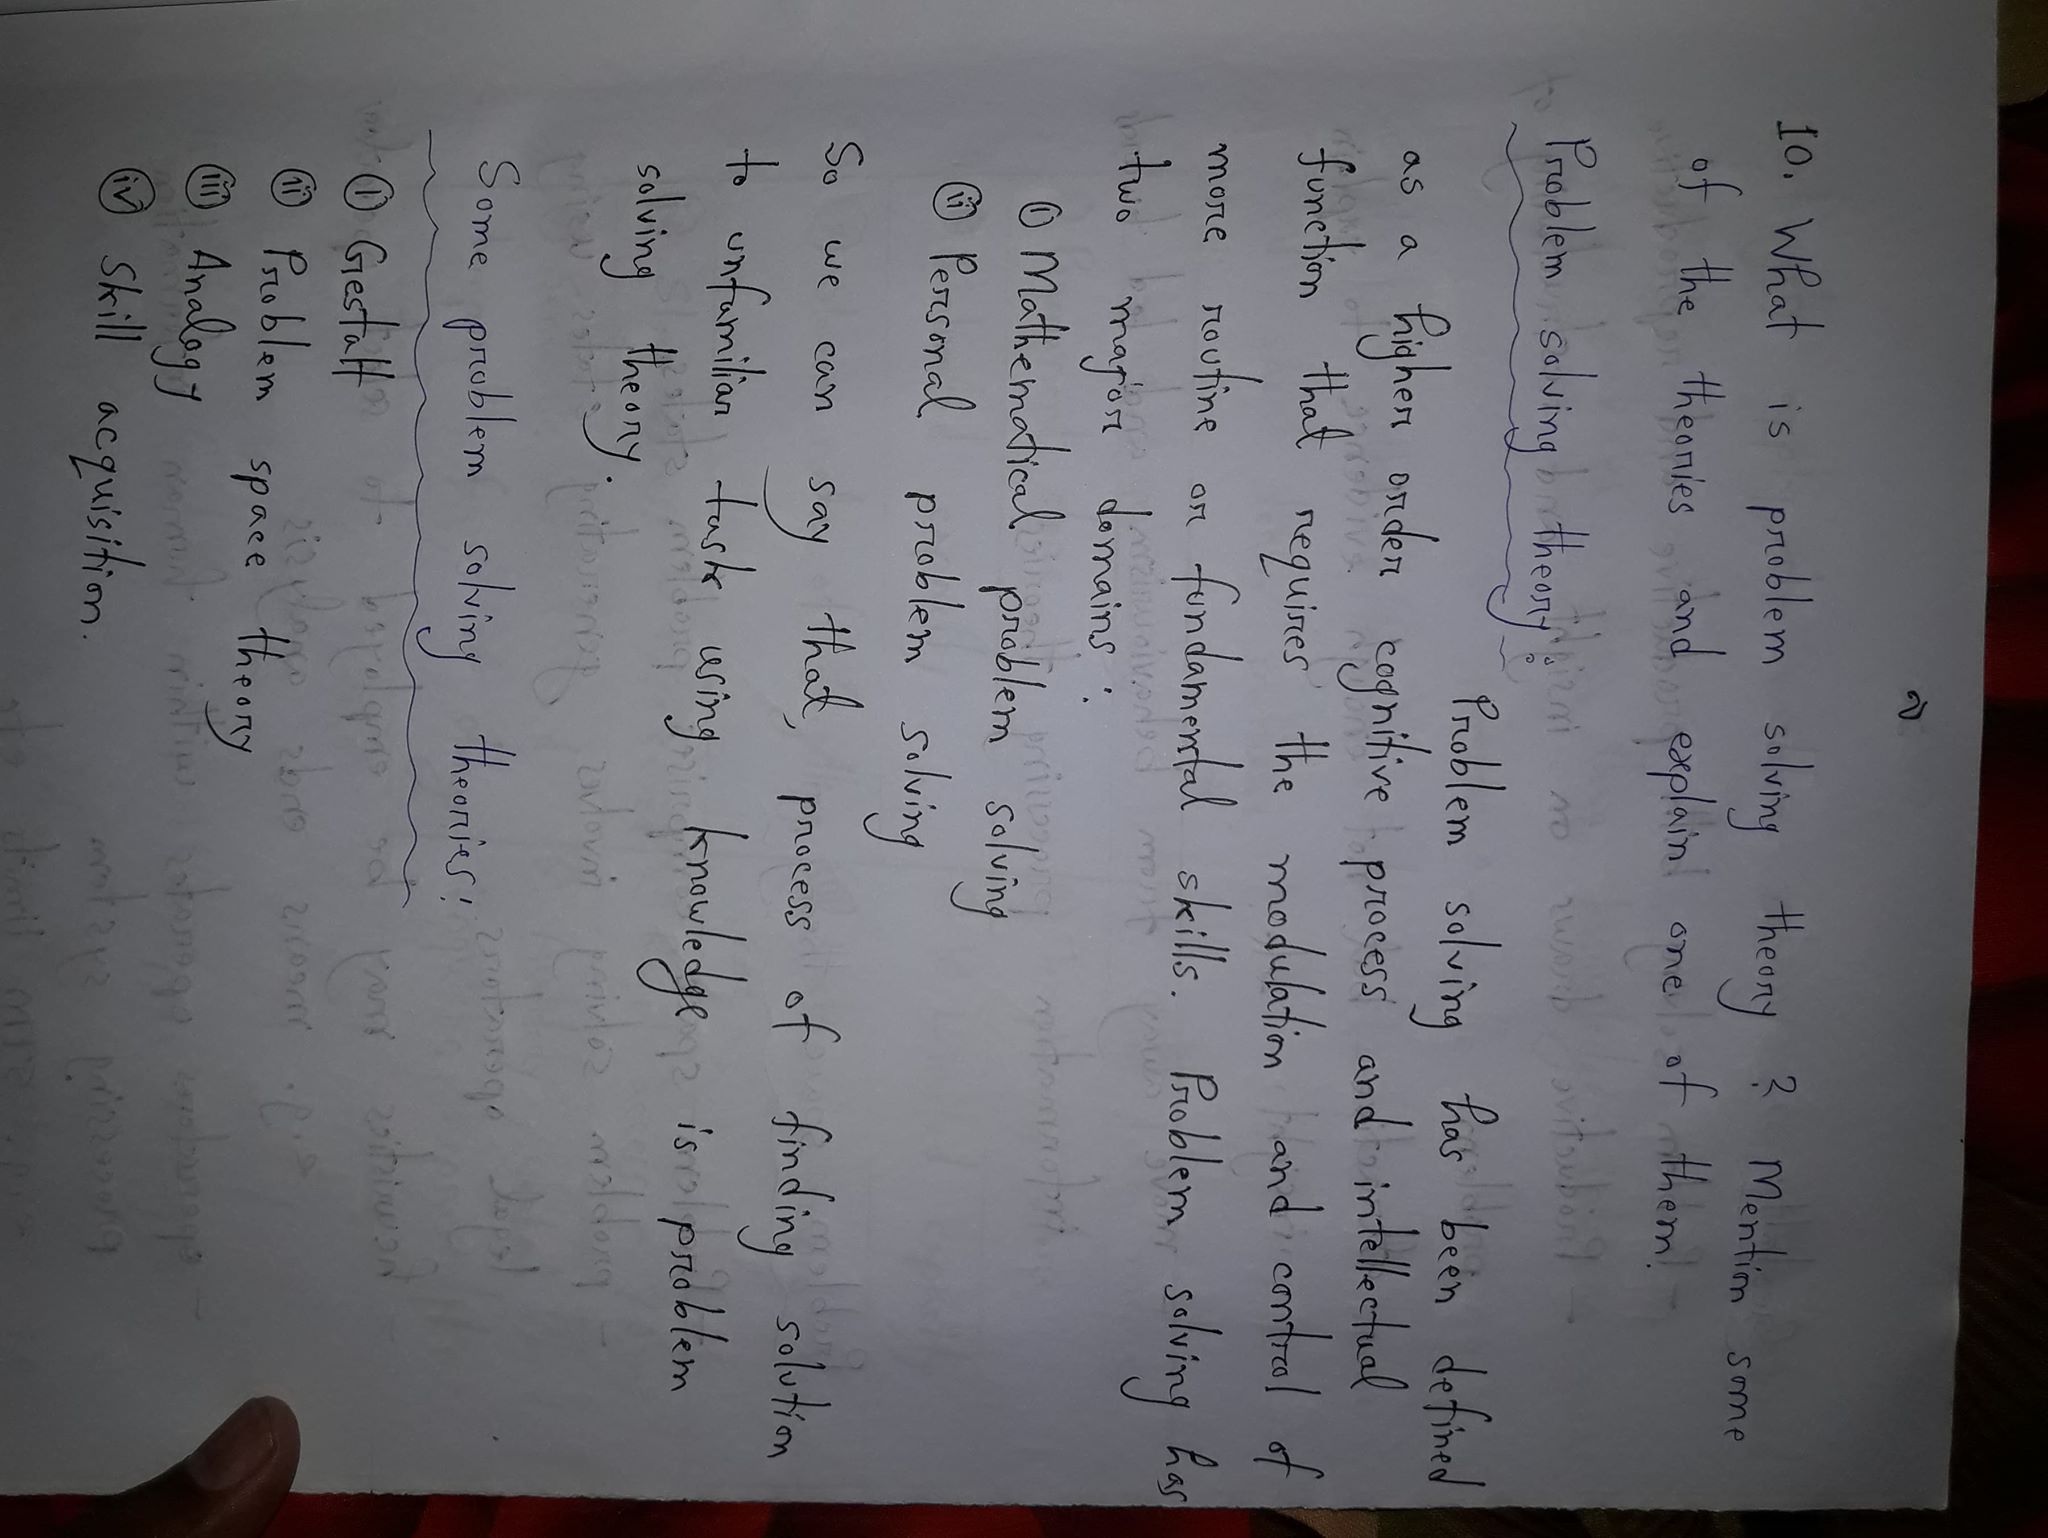 ২
10. What is problem solving theory? Mention some
of the theories and explain one of them.
Problem solving theory:
Problem solving has been defined
as a higher order cognitive process and intellectual
function that requires the modulation and control of
more routine or fundamental skills. Problem solving has
two magor domains:
(i) Mathematical problem solving
(ii) Personal problem solving
So we can say that, process of finding solution
to unfamiliar task using knowledge is problem
solving theory.
Some problem solving theories:
(i) Gestalt
(ii) Problem space theory
(iii) Analogy
(iv) Skill acquisition.